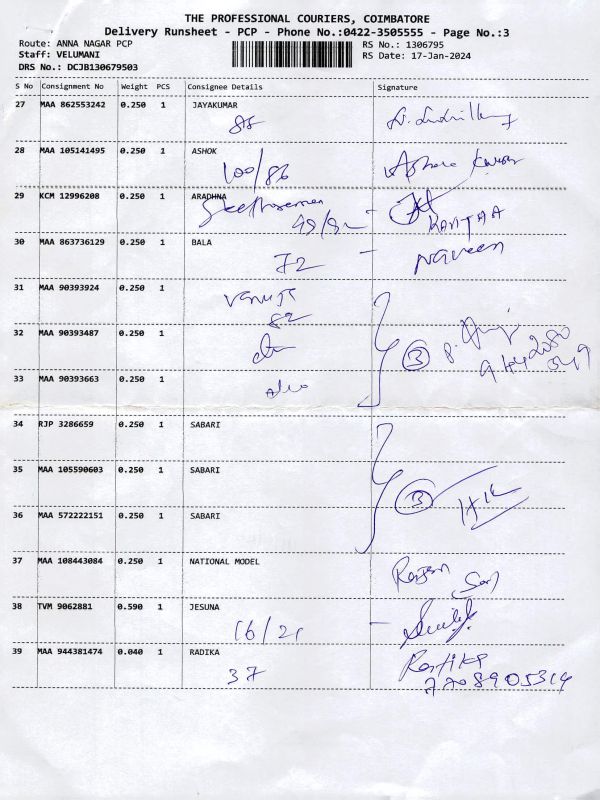 THE PROFESSIONAL COURIERS, COIMBATORE
Delivery Runsheet - PCP - Phone No.:0422-3505555 - Page No.:3
Route: ANNA NAGAR PCP
Staff: VELUMANI
DRS No.: DCJB130679503
RS No.: 1306795
RS Date: 17-Jan-2024
S No Consignment No Weight PCS Consignee Details Signature
27 MAA 862553242 0.250 1 JAYAKUMAR
88
28 MAA 105141495 0.250 1 ASHOK
100/86
29 KCM 12996208 0.250 1 ARADHNA
KAVIYAA
30 MAA 863736129 0.250 1 BALA
72 - Naveen
31 MAA 90393924 0.250 1
82
32 MAA 90393487 0.250 1
3
33 MAA 90393663 0.250 1
34 RJP 3286659 0.250 1 SABARI
35 MAA 105590603 0.250 1 SABARI
3
36 MAA 572222151 0.250 1 SABARI
37 MAA 108443084 0.250 1 NATIONAL MODEL
38 TVM 9062881 0.590 1 JESUNA
16/21 -
39 MAA 944381474 0.040 1 RADIKA
37
7708905314